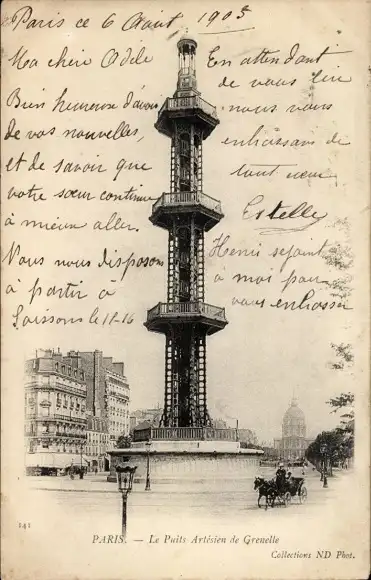 Paris ce 6 Août 1905
Ma chère Adèle
Bien heureuse d'avoir
de vos nouvelles,
et de savoir que
votre sœur continue
à mieux aller.
Nous nous disposons
à partir à
Soissons le 12-16
En attendant
de vous lire
nous vous
embrassons de
tout cœur
Estelle
Henri se joint
à moi pour
vous embrasser
141
PARIS. — Le Puits Artésien de Grenelle
Collections ND Phot.